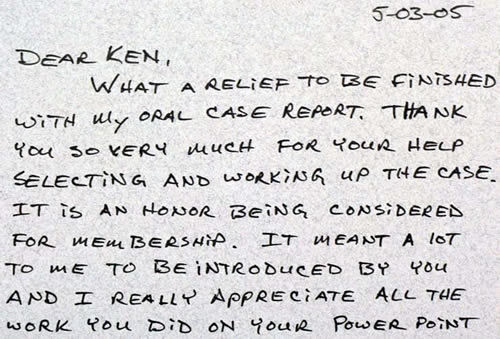 5-03-05
DEAR KEN,
WHAT A RELIEF TO BE FINISHED
WITH MY ORAL CASE REPORT. THANK
YOU SO VERY MUCH FOR YOUR HELP
SELECTING AND WORKING UP THE CASE.
IT IS AN HONOR BEING CONSIDERED
FOR MEMBERSHIP. IT MEANT A LOT
TO ME TO BE INTRODUCED BY YOU
AND I REALLY APPRECIATE ALL THE
WORK YOU DID ON YOUR POWER POINT